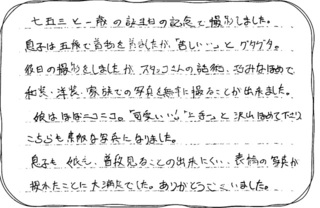 七五三と一歳の誕生日の記念で撮影しました。
息子は五歳で着物を着ましたが、"苦しい…"とグタグタ。
数日の撮影をしましたが、スタッフさんの話術、巧みなほめで
和装・洋装、家族での写真を無事に撮ることが出来ました。
娘はほぼニコニコ。"可愛いい"。"上手っ"と沢山ほめて下さり
こちらも素敵な写真になりました。
息子も娘も、普段見ることの出来にくい、表情の写真が
撮れたことに大満足でした。ありがとうございました。